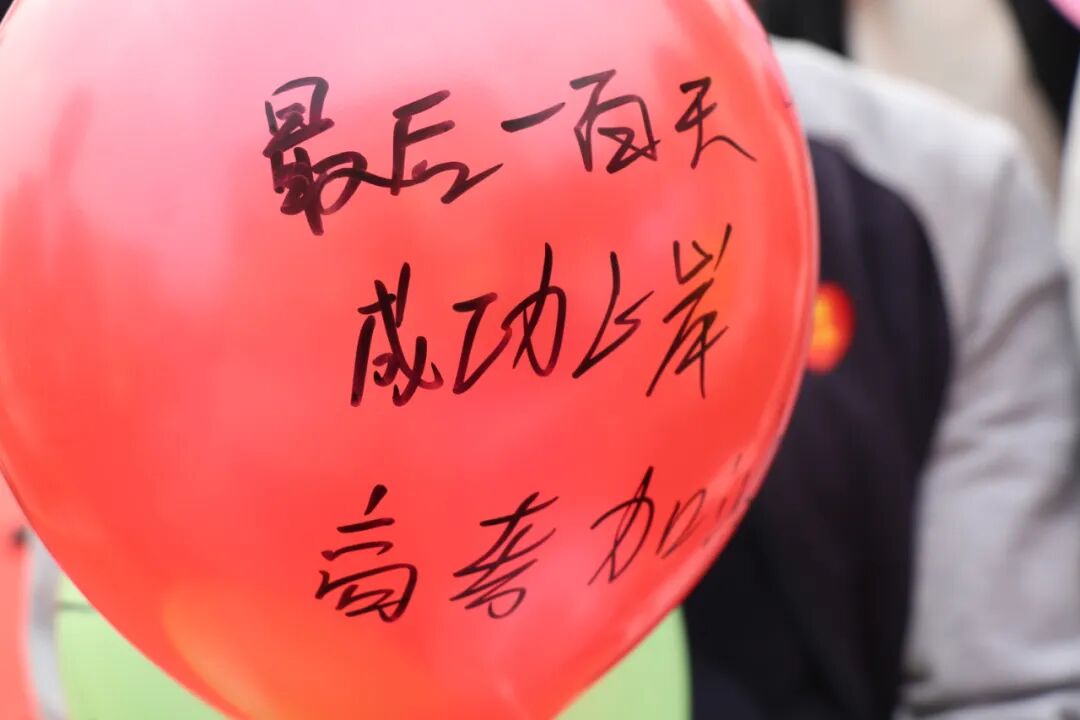 最后一百天
成功上岸
高考加